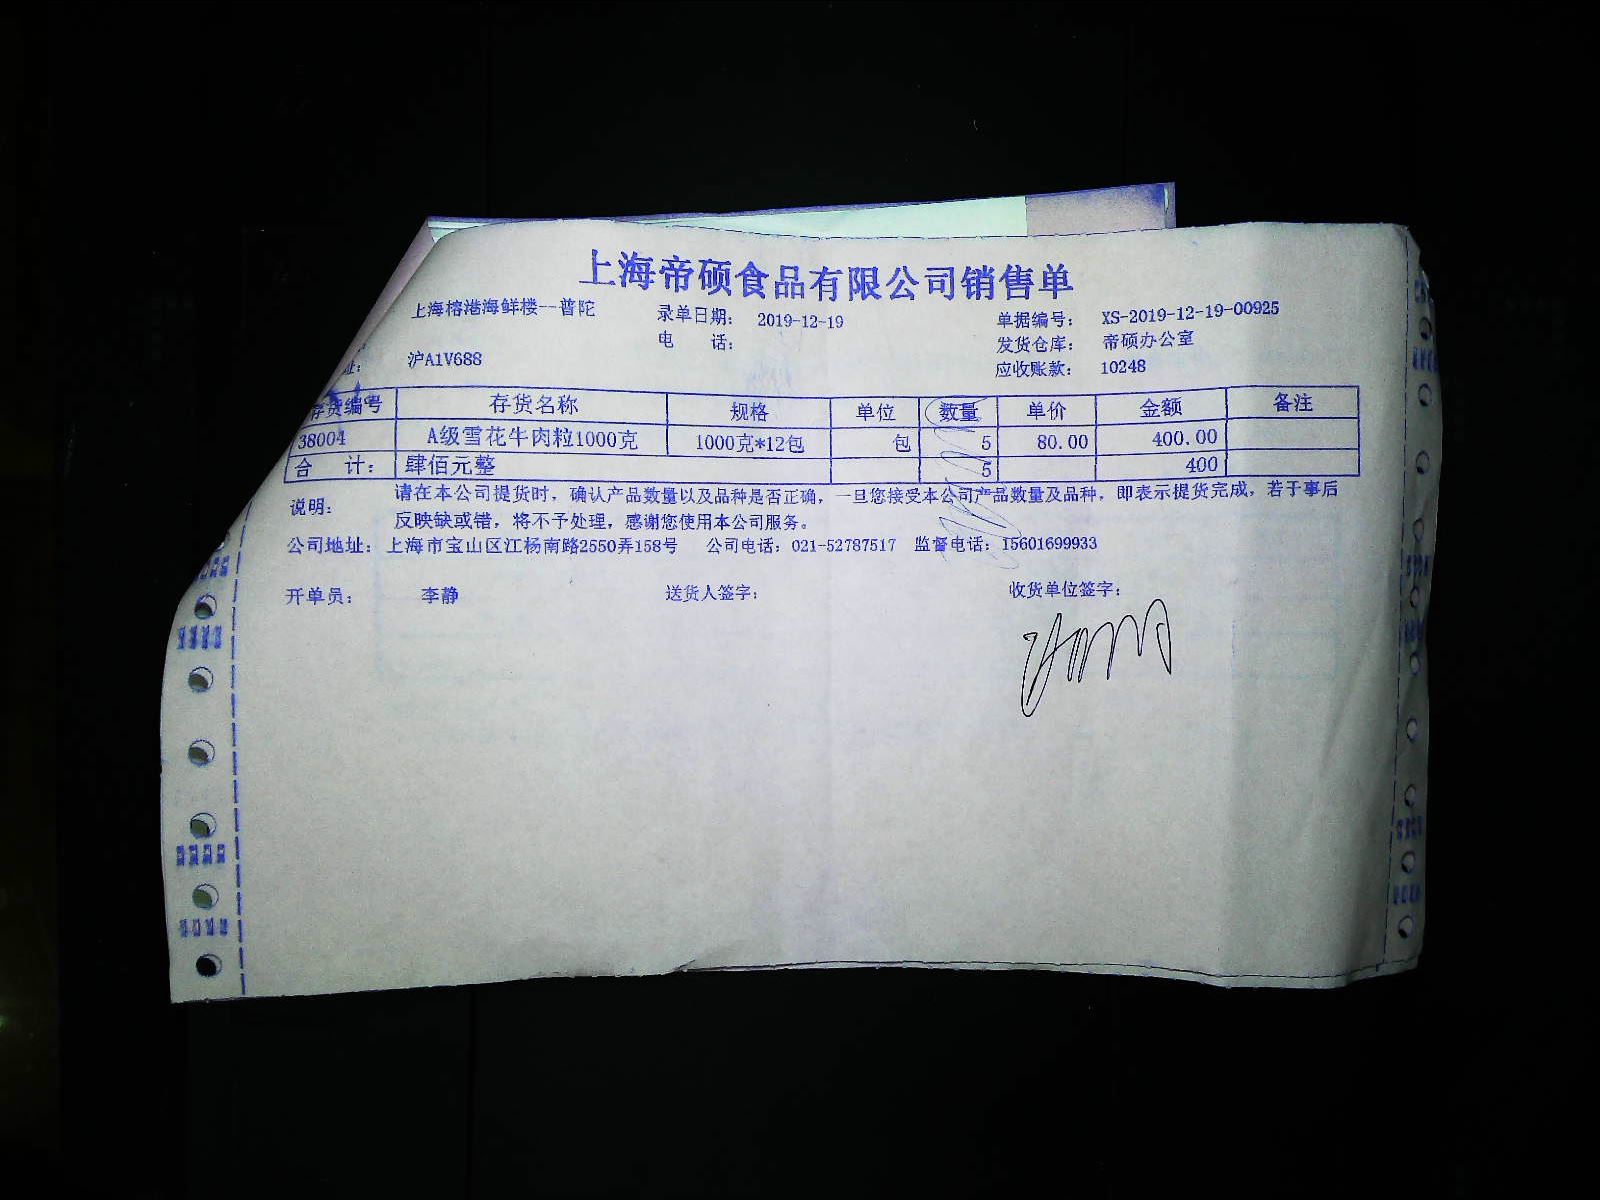 上海帝硕食品有限公司销售单
上海榕港海鲜楼--普陀 录单日期： 2019-12-19 单据编号： XS-2019-12-19-00925
电 话： 发货仓库： 帝硕办公室
址： 沪A1V688 应收账款： 10248
存货编号 存货名称 规格 单位 数量 单价 金额 备注
38004 A级雪花牛肉粒1000克 1000克*12包 包 5 80.00 400.00
合 计： 肆佰元整 5 400
说明： 请在本公司提货时，确认产品数量以及品种是否正确，一旦您接受本公司产品数量及品种，即表示提货完成，若于事后
反映缺或错，将不予处理，感谢您使用本公司服务。
公司地址： 上海市宝山区江杨南路2550弄158号 公司电话：021-52787517 监督电话：15601699933
开单员： 李静 送货人签字： 收货单位签字：